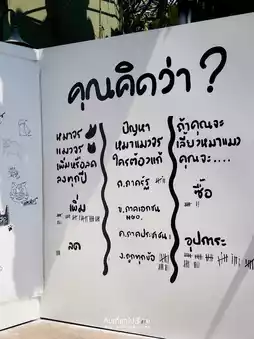 คุณคิดว่า ?
หมาจร
แมวจร
เพิ่มหรือลด
ลงทุกปี
เพิ่ม
ลด
ปัญหา
หมาแมวจร
ใครต้องแก้
ก.ภาครัฐ
ข.ภาคเอกชน
ค.ภาคประชาชน
ง.ถูกทุกข้อ
ถ้าคุณจะ
เลี้ยวหมาแมว
คุณจะ....
ซื้อ
อุปการะ